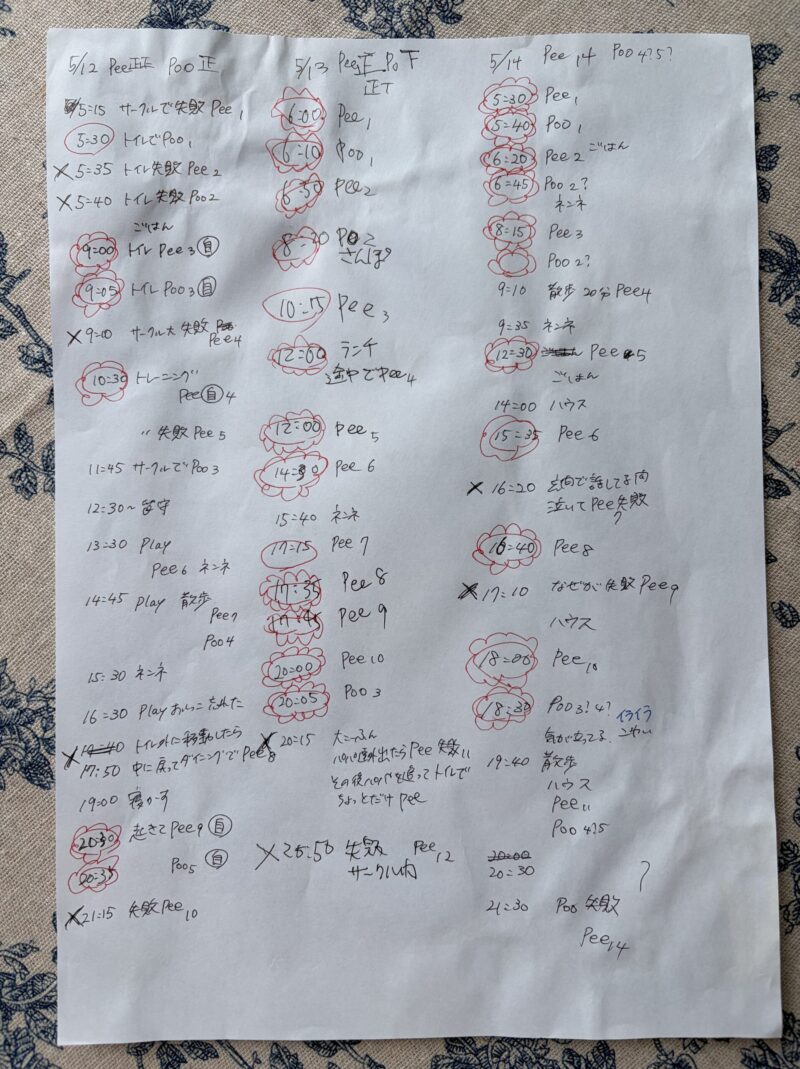 5/12 Pee正正 Poo 正
5:15 サークルで失敗 Pee 1
5:30 トイレでPoo 1
×5:35 トイレ失敗 Pee 2
×5:40 トイレ失敗 Poo 2
ごはん
9:00 トイレ Pee 3 自
9:05 トイレ Poo 3 自
×9:10 サークル大 失敗 Pee 4
10:30 トレーニング
Pee 自 4
〃 失敗 Pee 5
11:45 サークルでPoo 3
12:30〜 留守
13:30 Play
Pee 6 ネンネ
14:45 Play 散歩
Pee 7
Poo 4
15:30 ネンネ
16:30 Play おしっこ 忘れた
トイレ外に移動したら
×17:50 中に戻ってダイニングでPee 8
19:00 寝かす
20:30 起きて Pee 9 自
20:35 Poo 5 自
×21:15 失敗 Pee 10
5/13 Pee正 Po 下
正T
6:00 Pee 1
6:10 Poo 1
6:50 Pee 2
8:30 Po 2
さんぽ
10:15 Pee 3
12:00 ランチ
途中でPee 4
12:00 Pee 5
14:30 Pee 6
15:40 ネンネ
17:15 Pee 7
17:35 Pee 8
17:45 Pee 9
20:00 Pee 10
20:05 Poo 3
×20:15 大こーふん
外出たら Pee 失敗 11
その後 を追ってトイレで
ちょっとだけ Pee
× 失敗 Pee 12
サークル内
5/14 Pee 14 Poo 4?5?
5:30 Pee 1
5:40 Poo 1
6:20 Pee 2 ごはん
6:45 Poo 2?
ネンネ
8:15 Pee 3
Poo 2?
9:10 散歩 20分 Pee 4
9:35 ネンネ
12:30 Pee 5
ごはん
14:00 ハウス
15:35 Pee 6
×16:20 で話してる間
泣いて Pee 失敗
7
16:40 Pee 8
×17:10 なぜか失敗 Pee 9
ハウス
18:00 Pee 10
18:30 Poo 3? 4? イライラ
気が立ってる、こわい
19:40 散歩
ハウス
Pee 11
Poo 4?5
20:00
20:30 ?
21:30 Poo 失敗
Pee 14